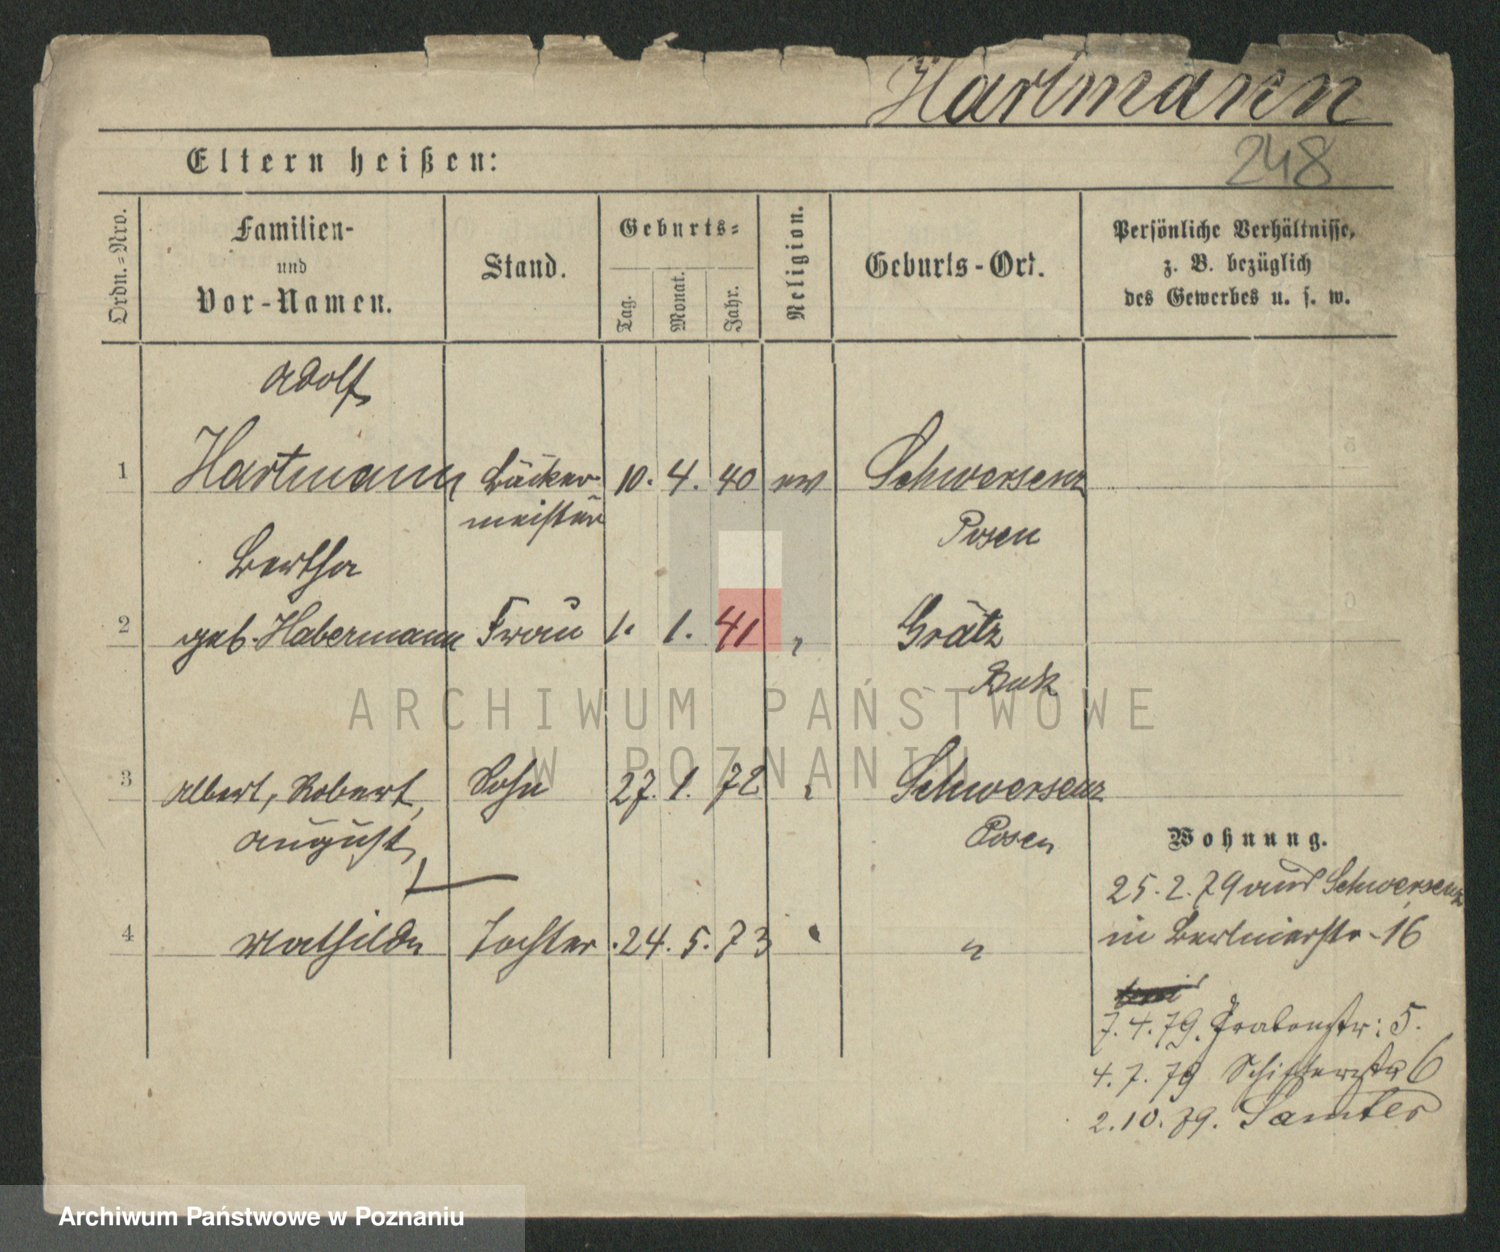 Hartmann
248
Eltern heißen:
Ordn.=Nro.
Familien-
und
Vor-Namen.
Stand.
Geburts=
Tag.
Monat.
Jahr.
Religion.
Geburts-Ort.
Persönliche Verhältnisse,
z. B. bezüglich
des Gewerbes u. s. w.
Adolf
1 Hartmann Bäcker- 10. 4. 40 ev Schwersenz
meister Posen
Bertha
2 geb. Habermann Frau 1. 1. 41 " Grätz
Buk
3 Albert, Robert, Sohn 27. 1. 72 " Schwersenz
August Posen
4 Mathilde Tochter 24. 5. 73 " "
Wohnung.
25. 2. 79 aus Schwersenz
in Berlinerstr. 16
7. 4. 79. Grabenstr: 5.
4. 7. 79 Schifferstr 6
2. 10. 79. Samter
ARCHIWUM PAŃSTWOWE
W POZNANIU
Archiwum Państwowe w Poznaniu